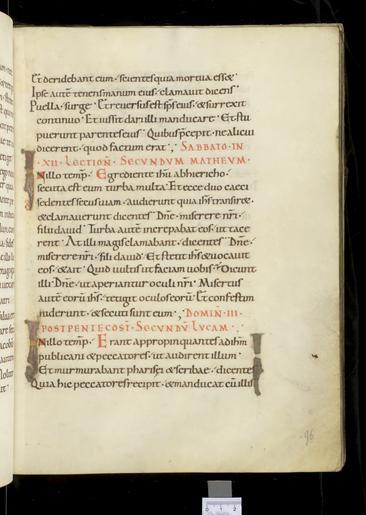 Et deridebant eum · scientes quia mortua esset
Ipse autē tenens manum eius · clamauit dicens
Puella · surge · Et reuersus est sp̄s eius · & surrexit
continuo · Et iussit dari illi manducare · Et stu
puerunt parentes eius · Quibus p̄cepit · ne alicui
dicerent · quod factum erat · SABBATO IN
XII · LECTION̄ · SECUNDUM MATHEUM ·
IN illo temp̄ · Egrediente ih̄u abhiericho ·
secuta est eum turba multa · Et ecce duo caeci
sedentes secus uiam · audierunt quia ih̄s transir&
& clamauerunt dicentes · Dn̄e · miserere nr̄i ·
fili dauid · Turba autē increpabat eos · ut tace
rent · At illi magis clamabant · dicentes · Dn̄e ·
miserere nr̄i · fili dauid · Et stetit ih̄s & uocauit
eos · & ait · Quid uultis ut faciam uobis · Dicunt
illi · Dn̄e · ut aperiantur oculi nr̄i · Misertus
autē eorū ih̄s · tetigit oculos eorū · Et confestim
uiderunt · & secuti sunt eum · DOMIN̄ · III ·
POST PENTECOST · SECUNDU LUCAM ·
IN illo temp̄ · Erant appropinquantes ad ih̄m
publicani & peccatores · ut audirent illum ·
Et murmurabant pharisei & scribae · dicentes
Quia hic peccatores recipit · & manducat cū illis
96